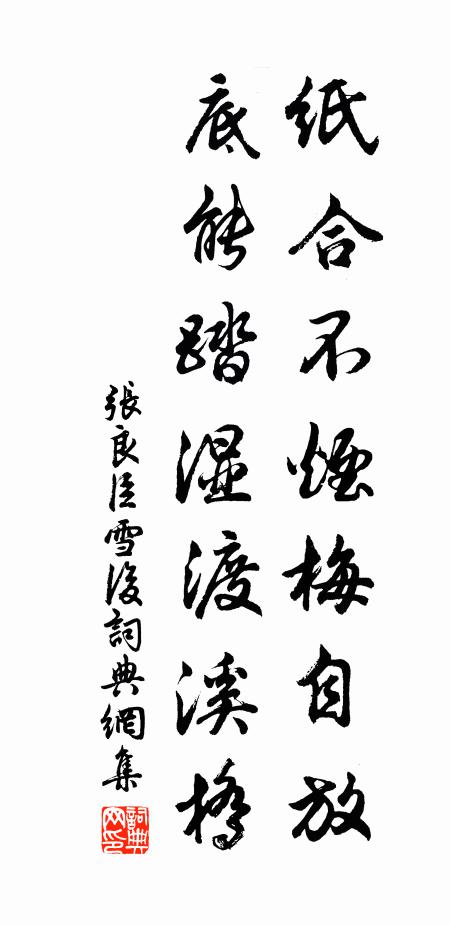 纸合不烟梅自放
底能踏湿渡溪桥
張良臣雪後詞典網集
詞典网印